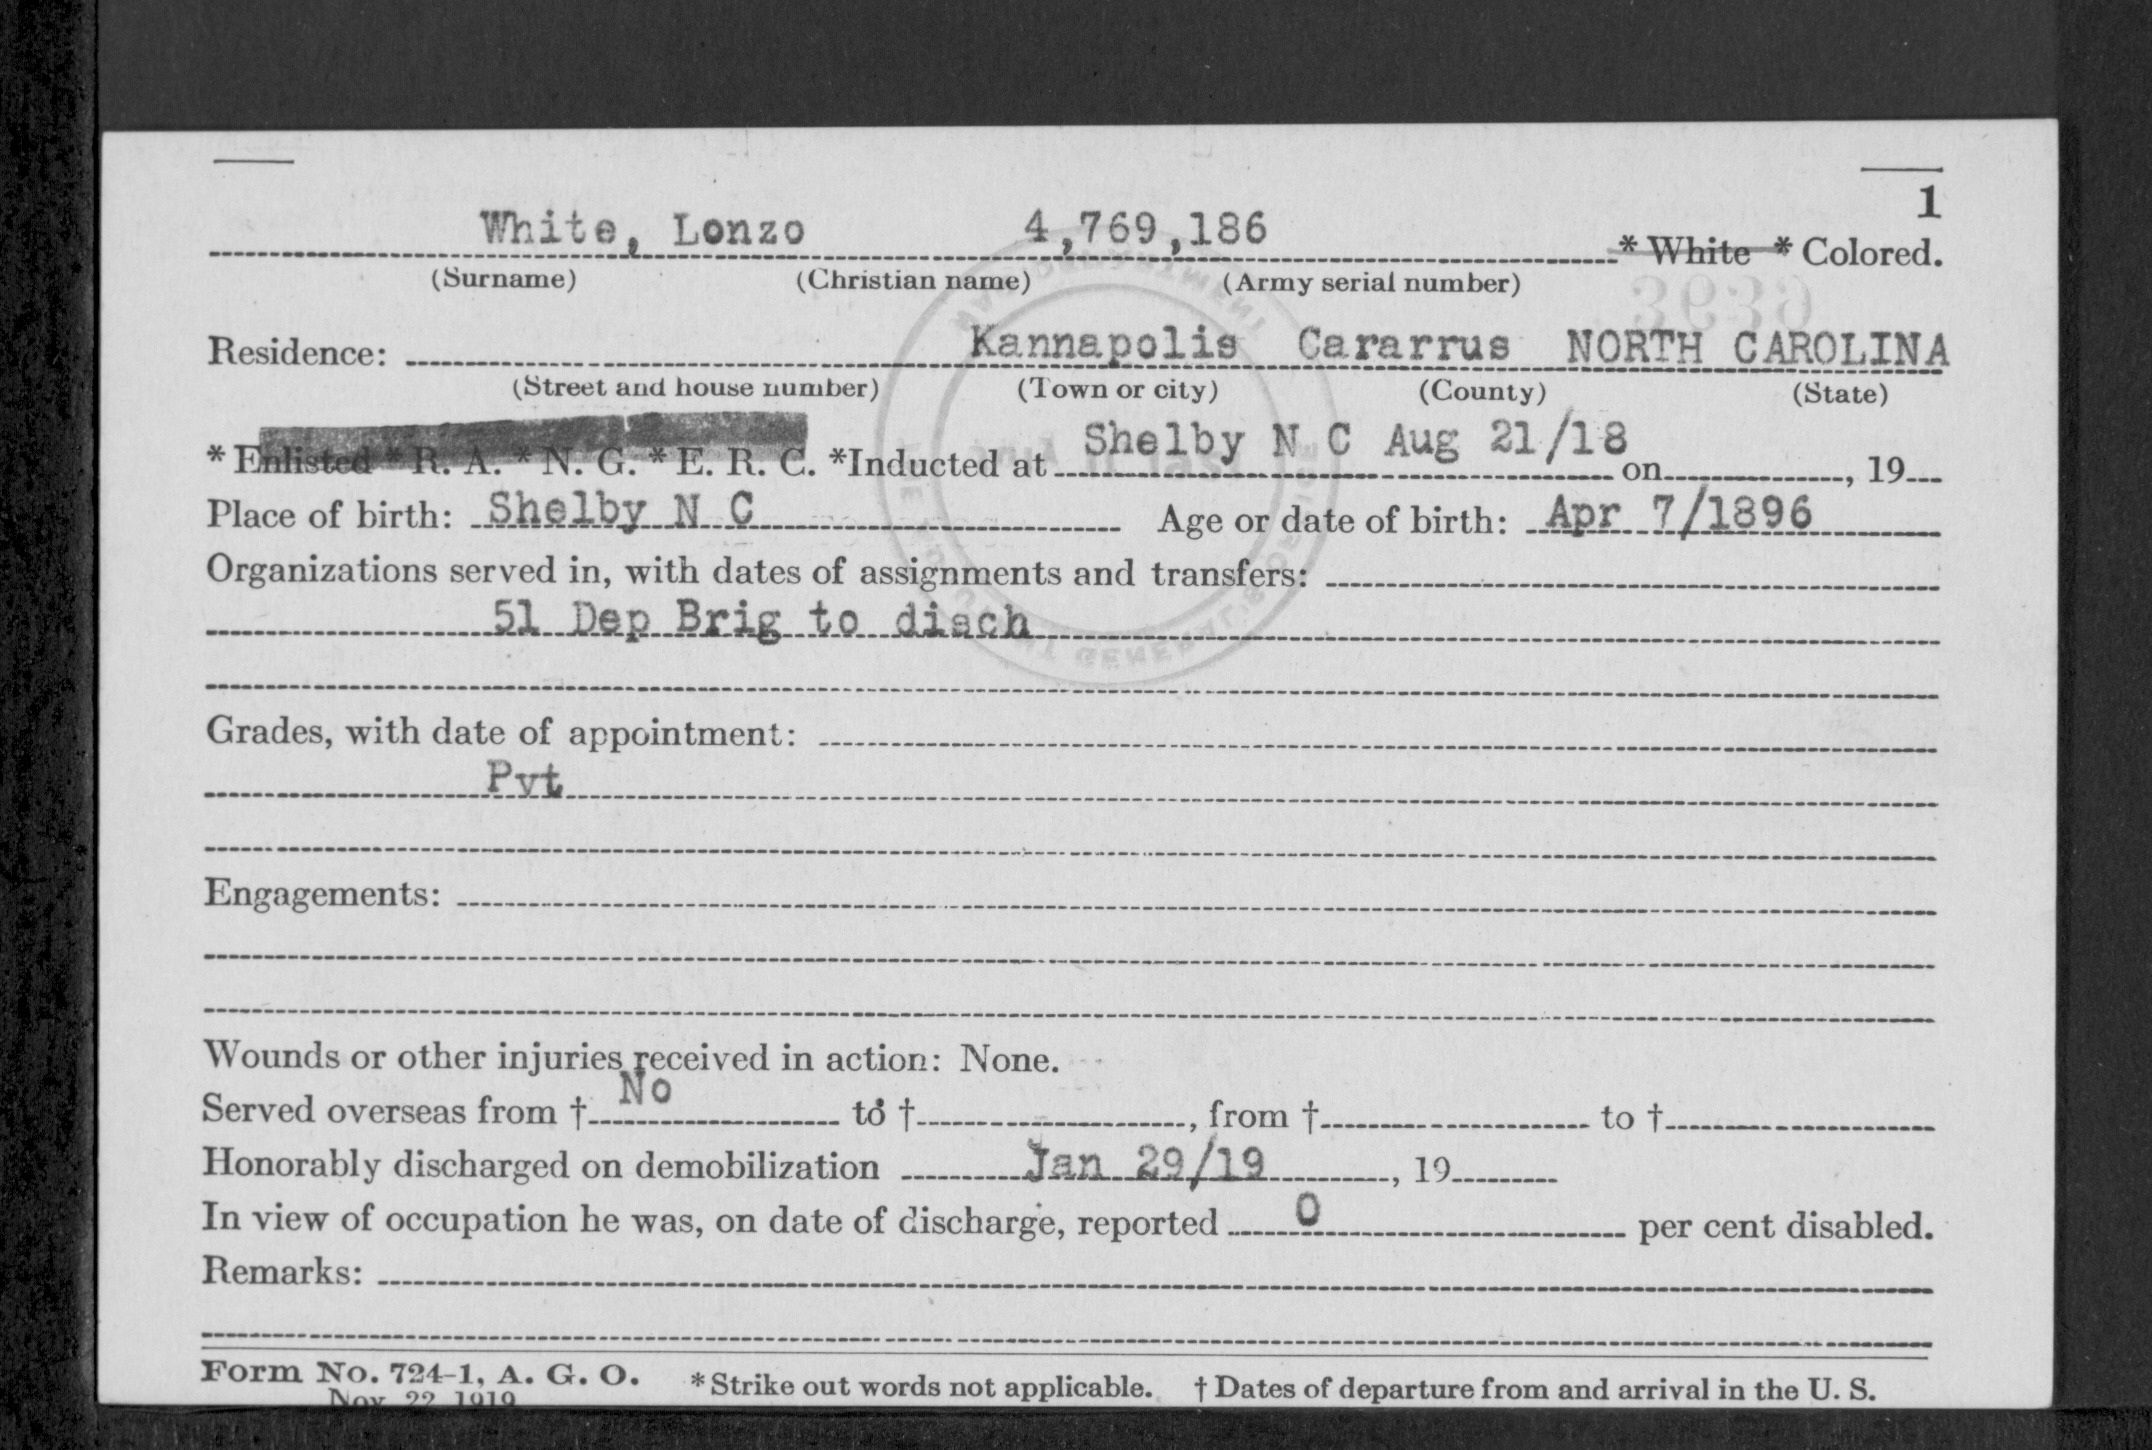 1
White, Lonzo 4,769,186 * White * Colored.
(Surname) (Christian name) (Army serial number)
Residence: Kannapolis Cararrus NORTH CAROLINA
(Street and house number) (Town or city) (County) (State)
* Enlisted * R. A. * N. G. * E. R. C. *Inducted at Shelby N C Aug 21/18 on , 19
Place of birth: Shelby N C Age or date of birth: Apr 7/1896
Organizations served in, with dates of assignments and transfers:
51 Dep Brig to disch
Grades, with date of appointment:
Pvt
Engagements:
Wounds or other injuries received in action: None.
Served overseas from † No to †, from † to †
Honorably discharged on demobilization Jan 29/19, 19
In view of occupation he was, on date of discharge, reported 0 per cent disabled.
Remarks:
Form No. 724-1, A. G. O. * Strike out words not applicable. † Dates of departure from and arrival in the U. S.
Nov. 22 1919